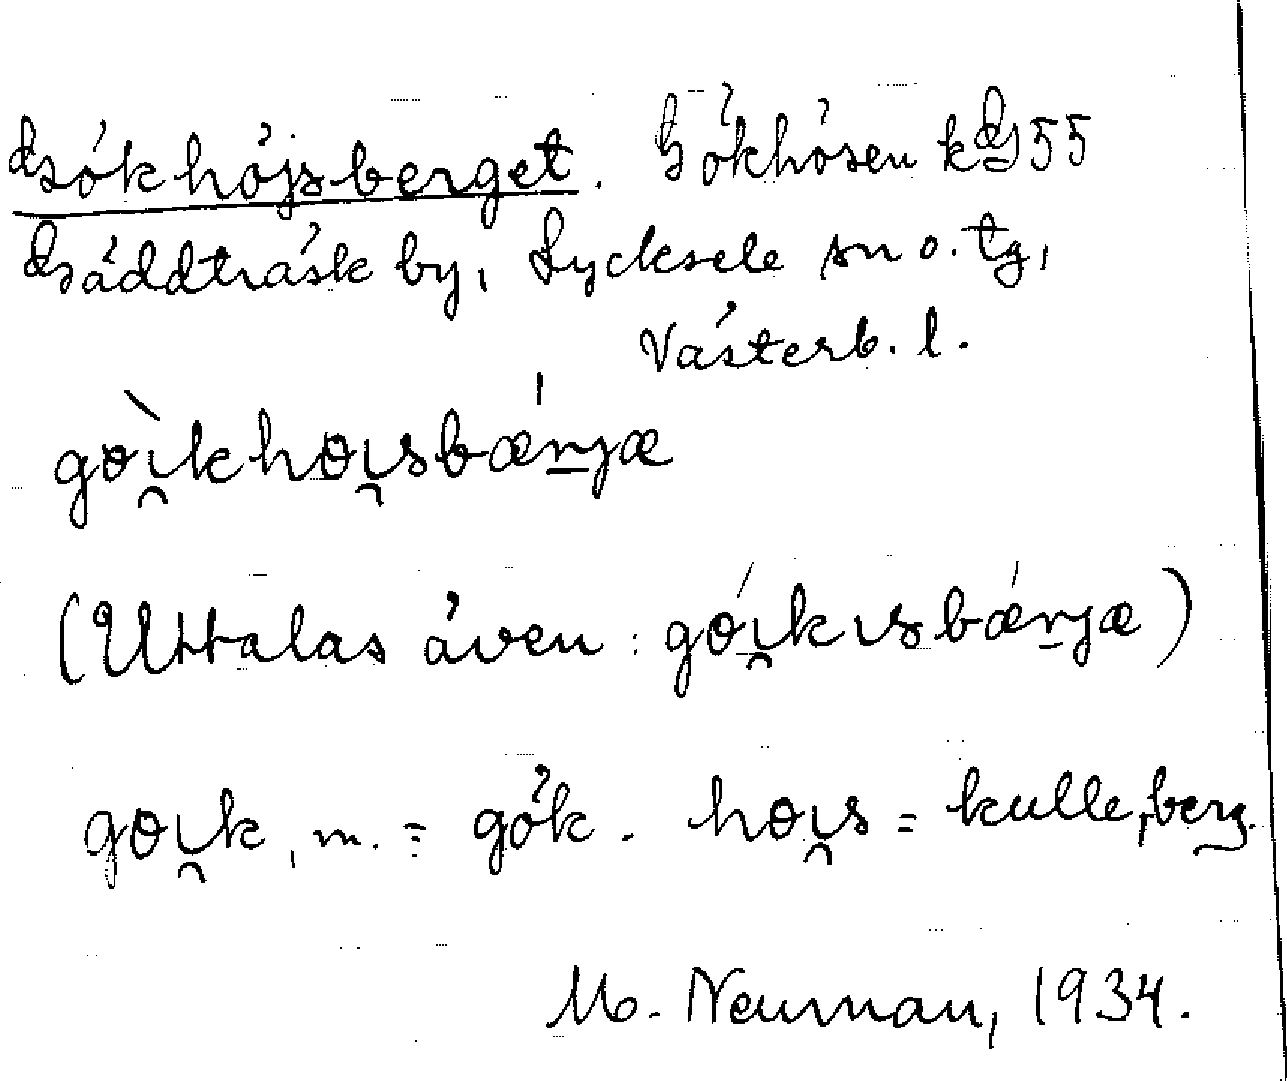 Gökhöjsberget. Gökhösen kG55
Gäddträsk by, Lycksele sn o. tg,
Västerb. l.
gòi̯khoi̯sbǽrjæ
(Uttalas även: gói̯kısbǽrjæ)
goi̯k, m. = gök. hoi̯s = kulle, berg.
M. Neuman, 1934.